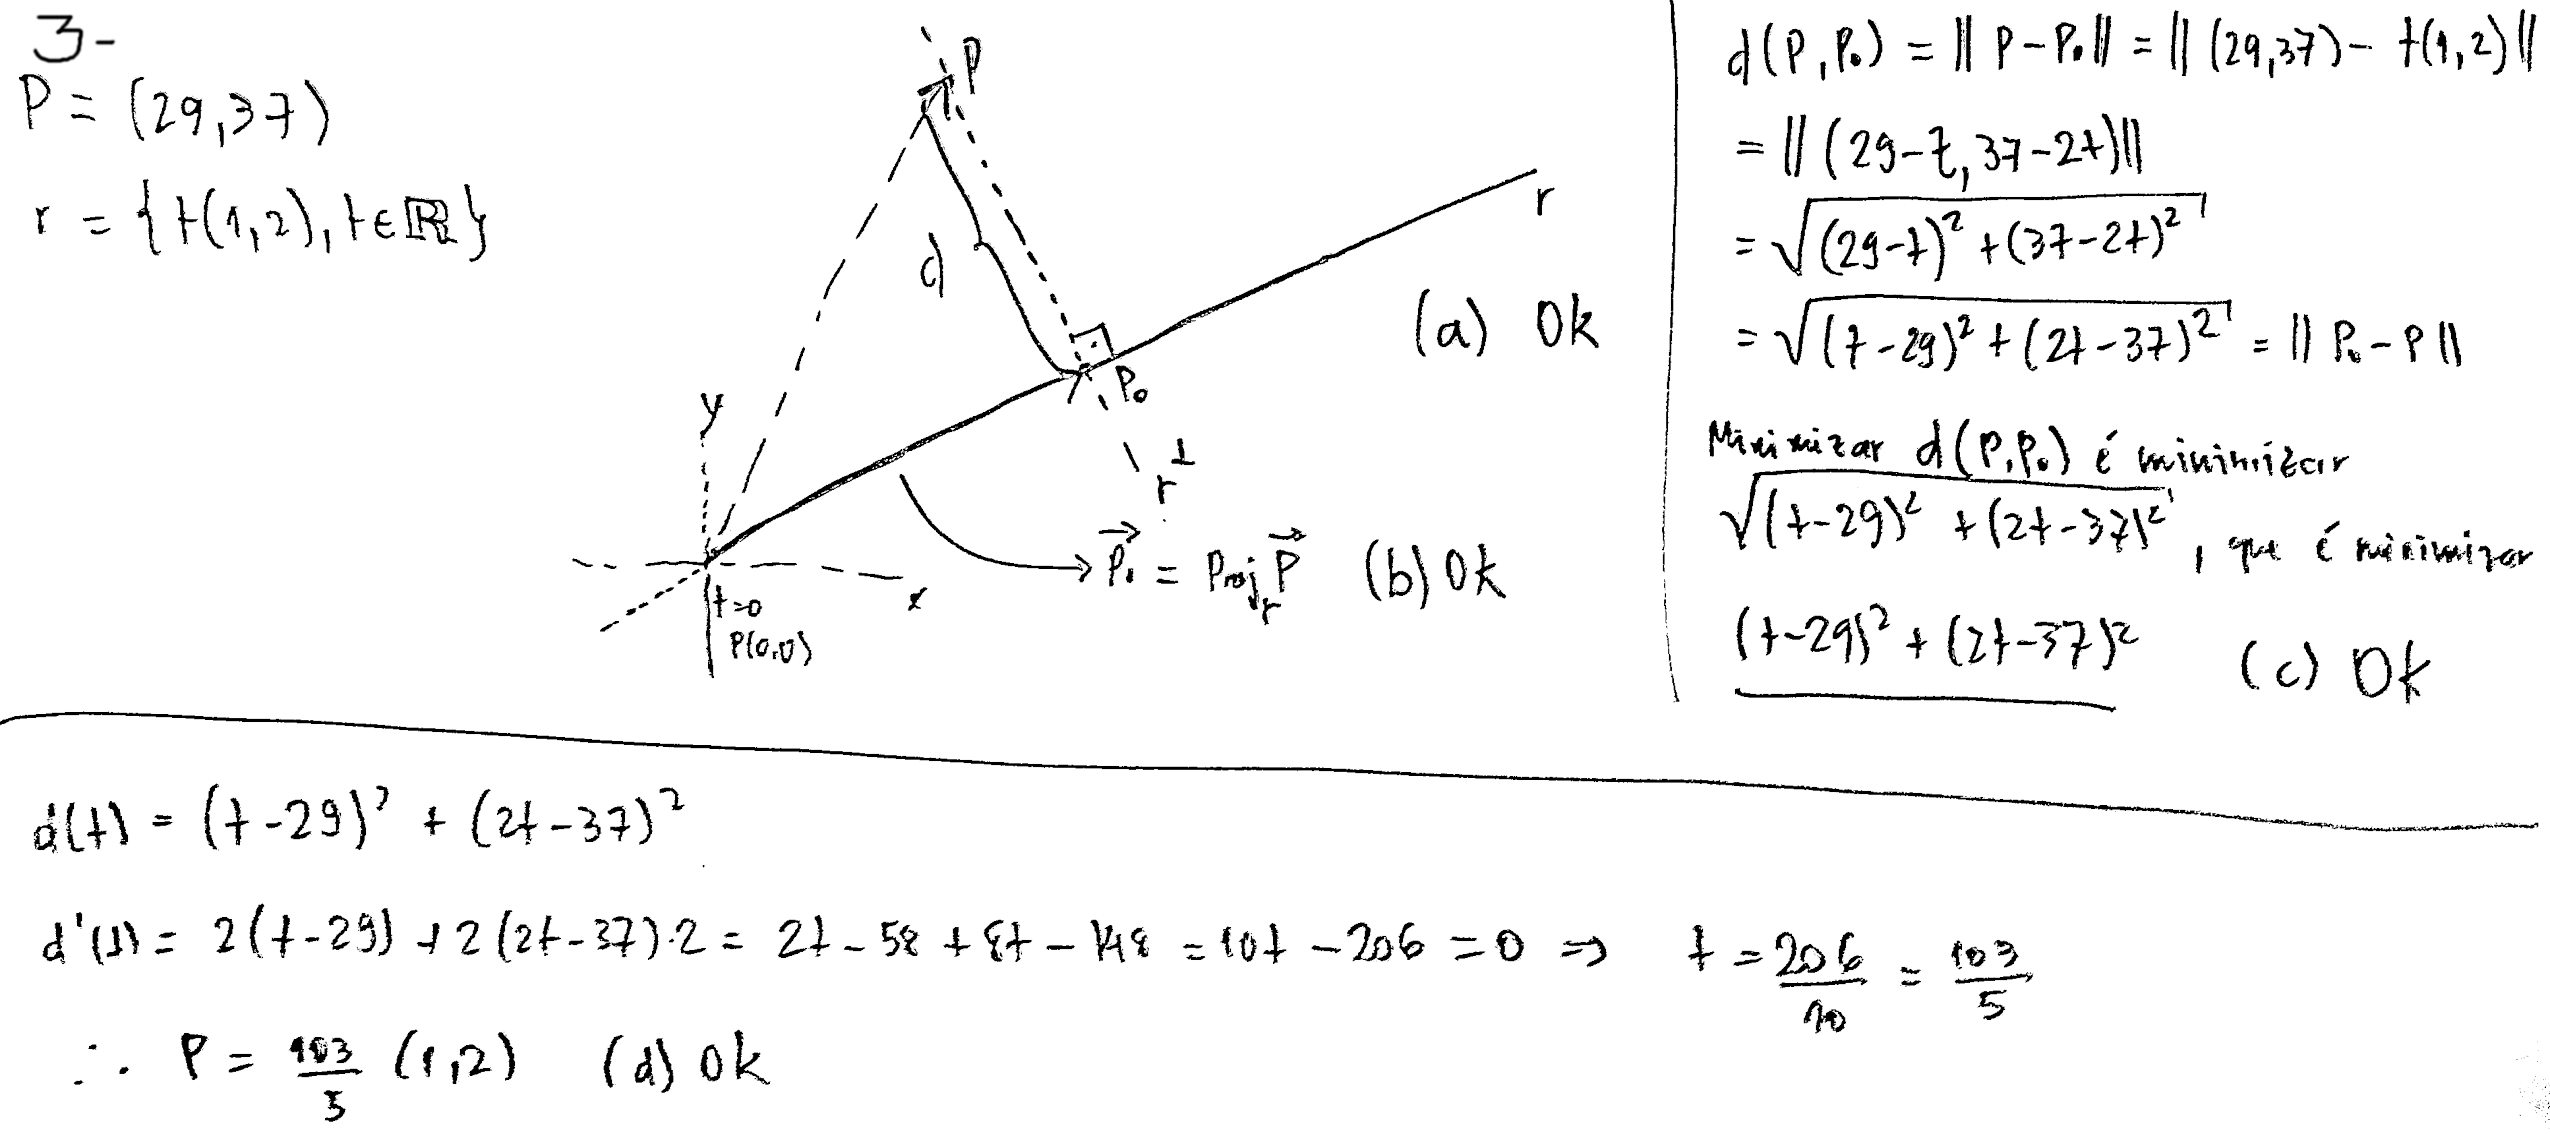 3-
P = (29,37)
r = {t(1,2), t∈ℝ}
P
d
r
(a) Ok
P₀
y
r⊥
P⃗₀ = Proj_r P⃗ (b) Ok
x
t=0
P(0,0)
d(P,P₀) = ||P-P₀|| = ||(29,37) - t(1,2)||
= ||(29-t, 37-2t)||
= √((29-t)² + (37-2t)²)
= √((t-29)² + (2t-37)²) = ||P₀-P||
Minimizar d(P,P₀) é minimizar
√((t-29)² + (2t-37)²), que é minimizar
(t-29)² + (2t-37)² (c) Ok
d(t) = (t-29)² + (2t-37)²
d'(t) = 2(t-29) + 2(2t-37)·2 = 2t - 58 + 8t - 148 = 10t - 206 = 0 ⇒ t = 206/10 = 103/5
∴ P = 103/5 (1,2) (d) Ok